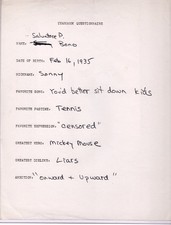 CHARADES QUESTIONNAIRE
Salvatore P.
NAME: Bono
DATE OF BIRTH: Feb 16, 1935
NICKNAME: Sonny
FAVORITE SONG: You'd better sit down kids
FAVORITE PASTIME: Tennis
FAVORITE EXPRESSION: "censored"
GREATEST HERO: Mickey Mouse
GREATEST DISLIKE: Liars
AMBITION: "Onward + Upward"